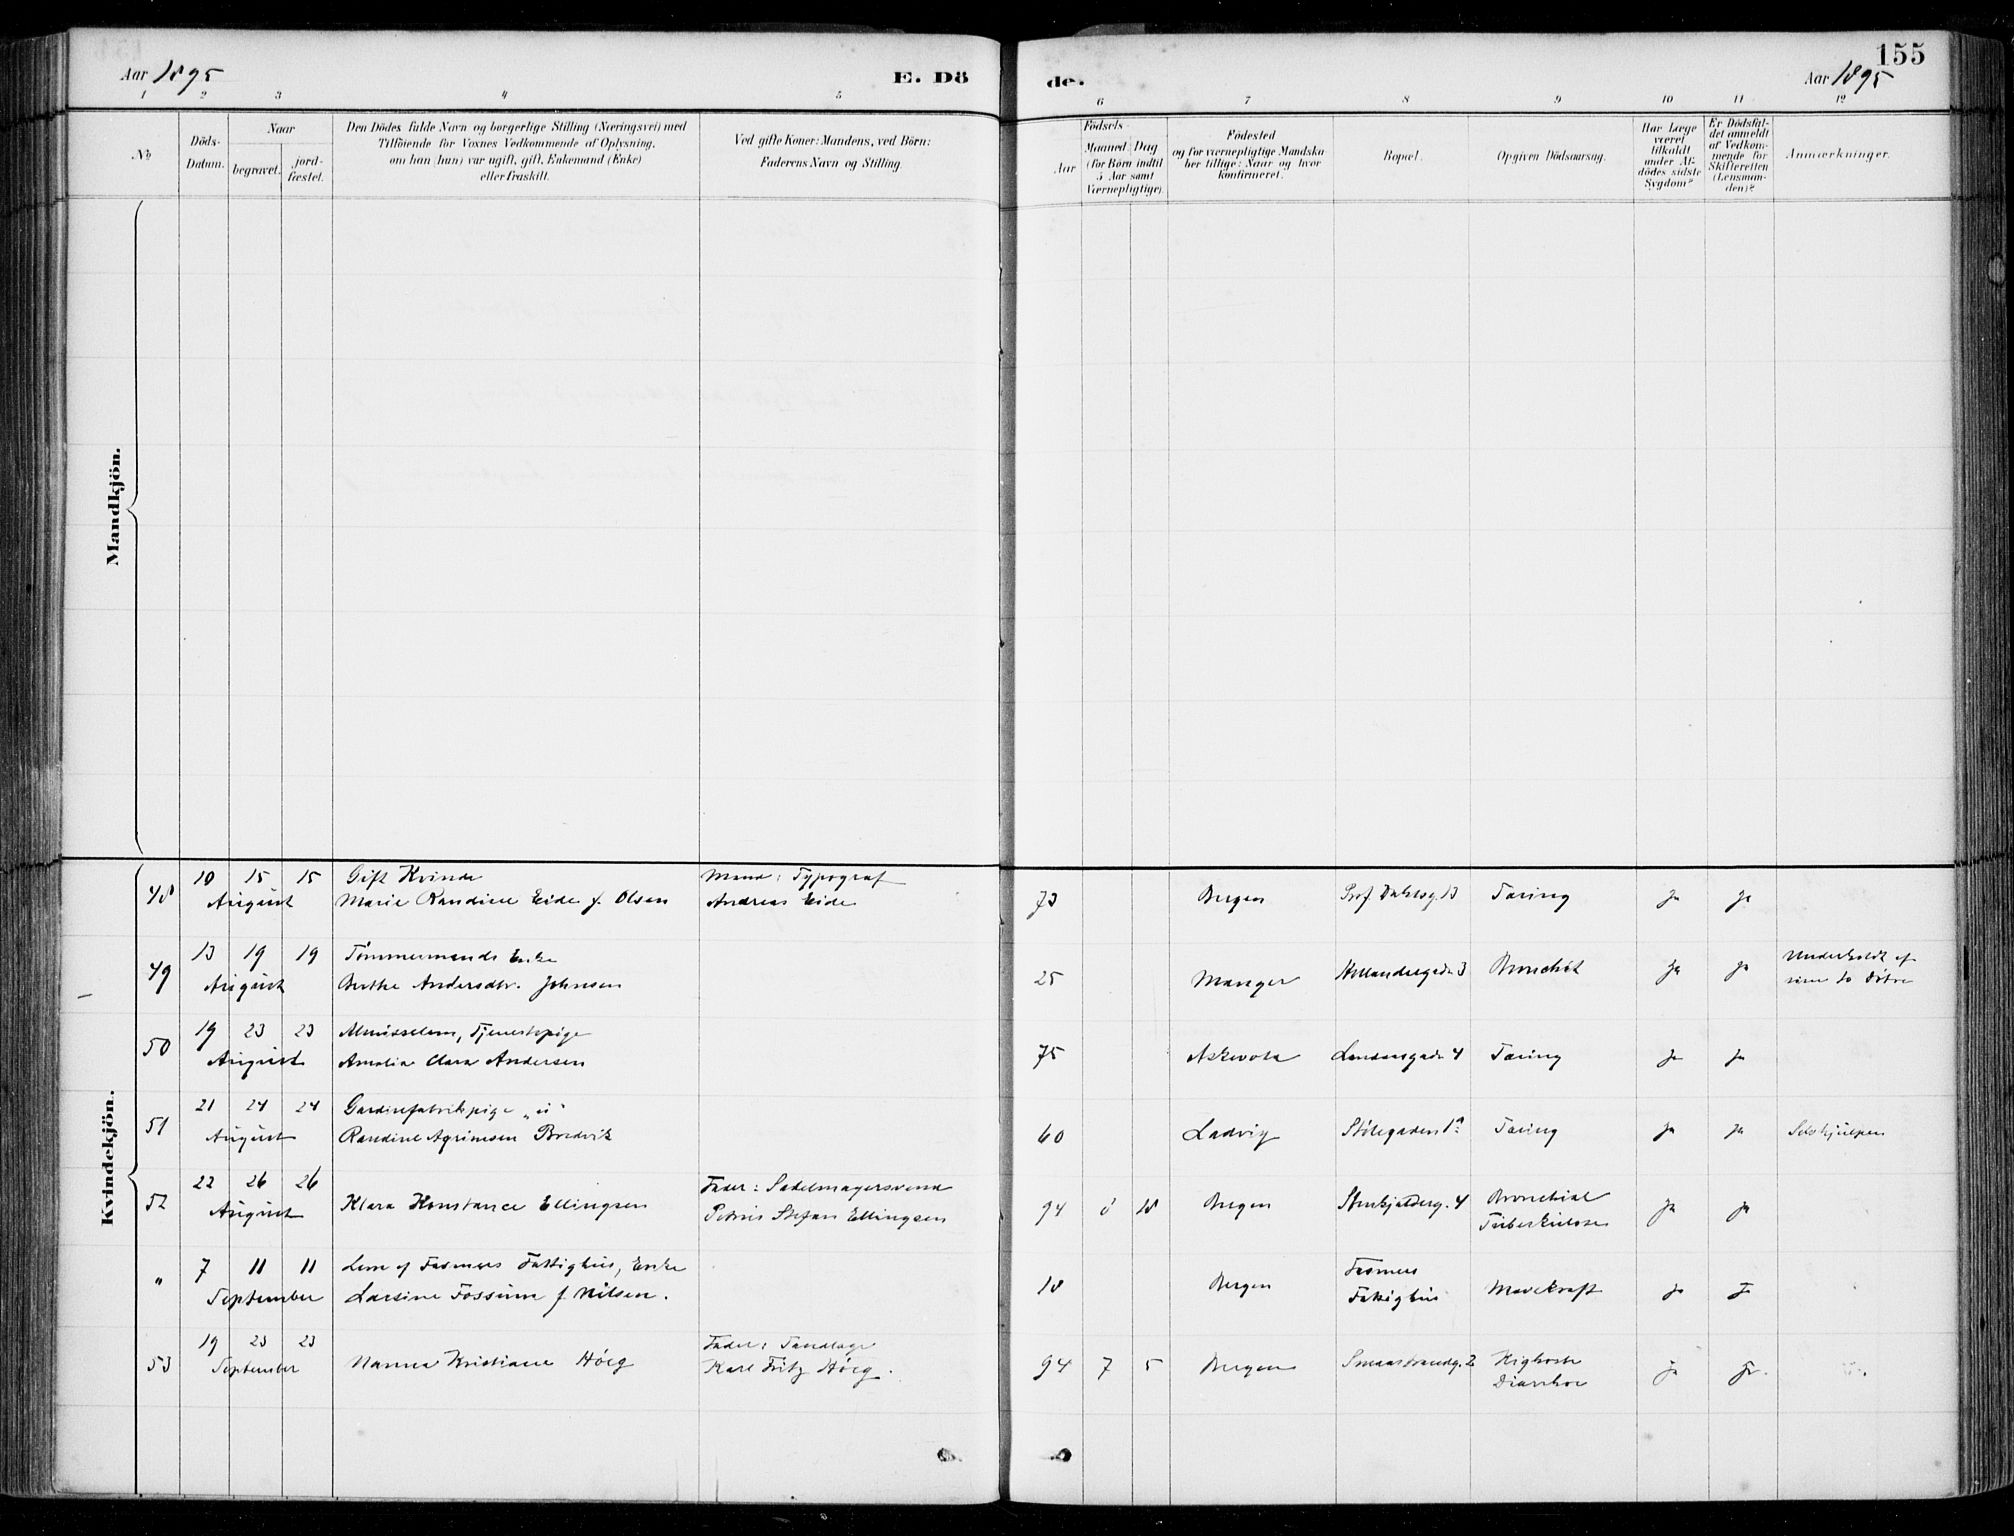 155
Aar 1895
E. Dö
de.
Aar 1895
1 2 3 4 5 6 7 8 9 10 11 12
No
Döds-
Datum.
Naar
begravet.
jord-
fæstet.
Den Dödes fulde Navn og borgerlige Stilling (Næringsvei) med
Tilföiende for Voxnes Vedkommende af Oplysning,
om han (hun) var ugift, gift, Enkemand (Enke)
eller fraskilt.
Ved gifte Koner: Mandens, ved Börn:
Faderens Navn og Stilling.
Födsels
Aar
Maaned Dag
(for Börn indtil
5 Aar samt
Værnepligtige).
Födested
og for værnepligtige Mandska
ber tillige: Naar og hvor
konfirmeret.
Bopæl.
Opgiven Dödsaarsag.
Har Læge
været
tilkaldt
under Af-
dödes sidste
Sygdom?
Er Dödsfal-
det anmeldt
af Vedkom-
mende for
Skifteretten
(Lensman-
den)?
Anmærkninger.
Mandkjön.
Kvindekjön.
48 10 15 15 August
Gift Kvinde
Marie Randine Eide f. Olsen
Mand: Typograf
Andreas Eide
73 Bergen Prof. Dahlsg. 13 Tæring ja ja
49 13 19 19 August
Tömmermands Enke
Berthe Andersdtr. Johnsen
25 Manger 3 Bronchit ja ja
Underholdt af
sine to Døtre
50 19 23 23 August
Tjenestepige
Amalia Clara Andersen
75 Askevold 4 Tæring ja ja
51 21 24 24 August
Gardinfabrikpige
Randine Agrimsen Bredvik
60 Ladvig Stölegaden 1a Tæring ja ja Selvhjulpen
52 22 26 26 August
Klara Konstance Ellingsen
Fader: Sadelmagersvend
Petrus Stefan Ellingsen
94 8 18 Bergen 4 Bronchial
Tuberkulose ja ja
" 7 11 11 September
Lem af Fasmers Fattighus, Enke
Larsine Fossum f. Nilsen.
18 Bergen Fasmers
Fattighus Mavekræft ja ja
53 19 23 23 September
Nanna Kristiane Höeg
Fader: Tandlæge
Karl Fritz Höeg.
94 7 5 Bergen Smaastrandg. 2 Kighoste
Diarrhoe ja ja